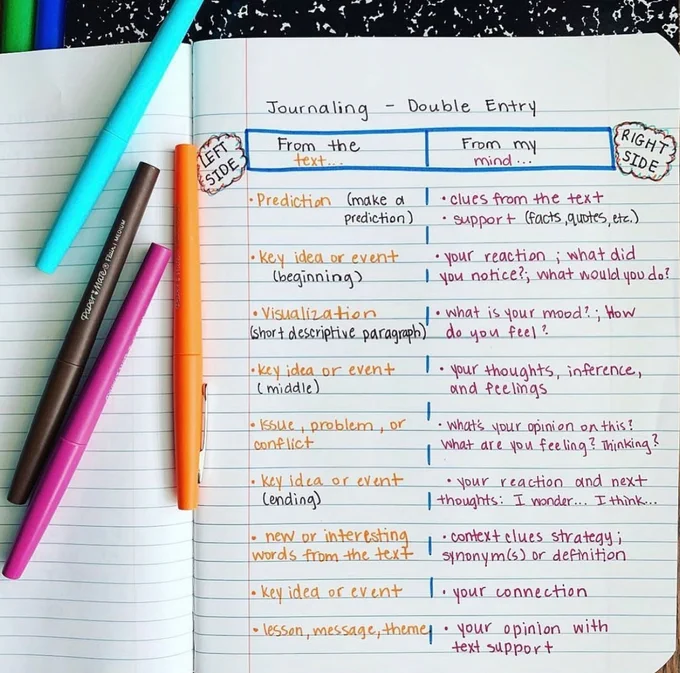 Journaling - Double Entry
LEFT
SIDE
From the
text...
From my
mind...
RIGHT
SIDE
• Prediction (make a
prediction)
• clues from the text
• support (facts, quotes, etc.)
• key idea or event
(beginning)
• your reaction ; what did
you notice?; what would you do?
• Visualization
(short descriptive paragraph)
• what is your mood? ; How
do you feel?
• key idea or event
(middle)
• your thoughts, inference,
and feelings
• Issue, problem, or
conflict
• what's your opinion on this?
What are you feeling? Thinking?
• key idea or event
(ending)
• your reaction and next
thoughts: I wonder... I think...
• new or interesting
words from the text
• context clues strategy;
synonym(s) or definition
• key idea or event
• your connection
• lesson, message, theme
• your opinion with
text support
Paper Mate® Flair! MEDIUM